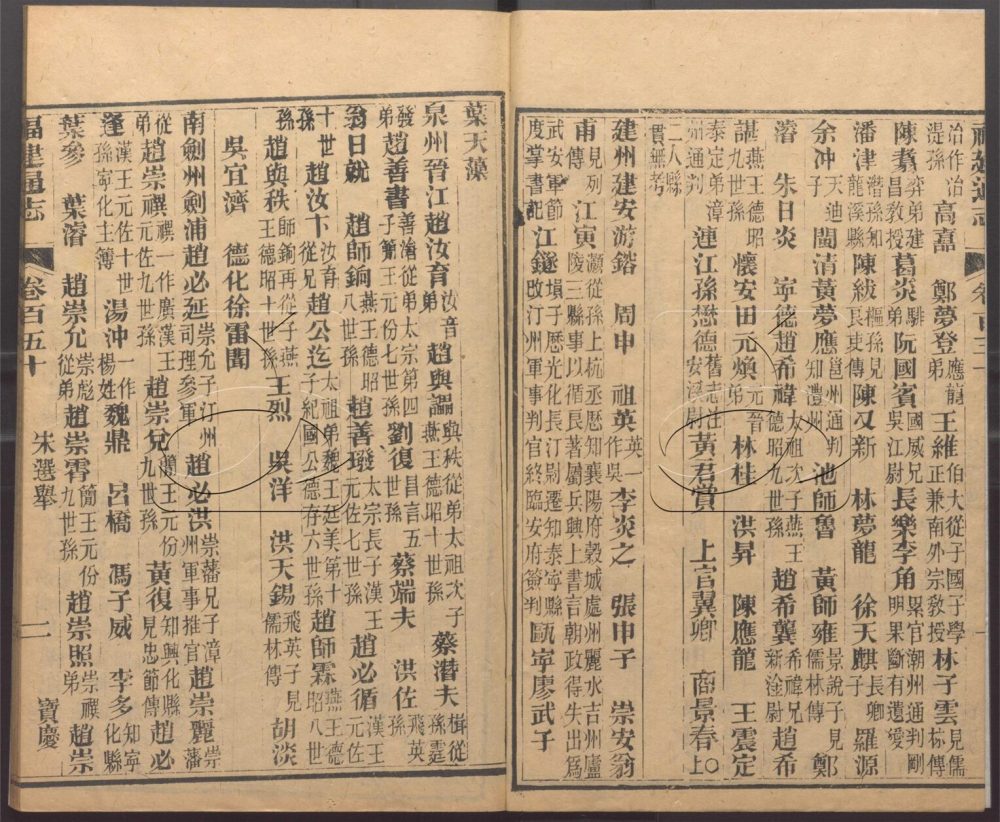 治作冶 高嚞 鄭夢登應龍弟 王維伯大從子國子學正兼南外宗教授 林子雲見儒林傳
湜孫
陳翥弈弟建昌教授 葛炎騑弟 阮國賓國威兄吳江尉 長樂李角累官潮州通判剛明果斷有遺愛
潘津潛孫知龍溪縣 陳紱樞孫見良吏傳 陳又新 林夢龍 徐天麒子長卿 羅源
余冲天迪子 閩清黃夢應邕州通判知澧州 池師魯 黃師雍景說子見儒林傳 鄭
濬 朱日炎 寧德趙希禕太祖次子燕王德昭九世孫 趙希龑希禕兄新淦尉 趙希
諶燕王德昭九世孫 懷安田元煥元晉弟 林桂 洪昇 陳應龍 王震定
泰定弟漳州通判 連江孫懋德舊志注安溪尉 黃君賞 上官翼卿 商景春〇上
二人縣貫無考
建州建安游鎔 周申 祖英英一作吳 李炎之 張申子 崇安翁
甫見列傳 江寅灝從孫上杭丞歷知襄陽府穀城處州麗水吉州廬陵三縣事以循良著屬兵興上書言朝政得失出爲
武安軍節度掌書記 江鐩塤子歷光化長汀尉遷知泰寧縣改汀州軍事判官終臨安府簽判 甌寧廖武子
葉天藻
泉州晉江趙汝育汝音弟 趙與諨與秩從弟太祖次子燕王德昭十世孫 蔡潛夫楫從孫霆
發弟 趙善書善濬從弟太宗第四子商王元份七世孫 劉復昌言五世孫 蔡端夫 洪佐飛英孫
翁日就 趙師錭燕王德昭八世孫 趙善璒太宗長子漢王元佐七世孫 趙必循漢王元佐
十世孫 趙汝卞汝育從兄 趙公迄太祖弟魏王廷美第十子紀國公德存六世孫 趙師霖燕王德昭八世
孫 趙與秩師錭再從子燕王德昭十世孫 王烈 吳洋 洪天錫飛英子見儒林傳 胡淡
吳宜濟 德化徐雷聞
南劍州劍浦趙必延崇允子汀州司理參軍 趙必洪崇藩兄子漳州軍事推官 趙崇麗崇藩
從弟 趙崇禩禩一作廣漢王元佐九世孫 趙崇兌簡王元份九世孫 黃復知興化縣見忠節傳 趙必
逢漢王元佐十世孫寧化主簿 湯沖一作楊姓 魏鼎 呂橋 馮子威 李多知寧化縣
葉參 葉濬 趙崇允崇彪從弟 趙崇霄簡王元份九世孫 趙崇照崇禩弟 趙崇
福建通志 卷百五十 宋選舉 二 寶慶